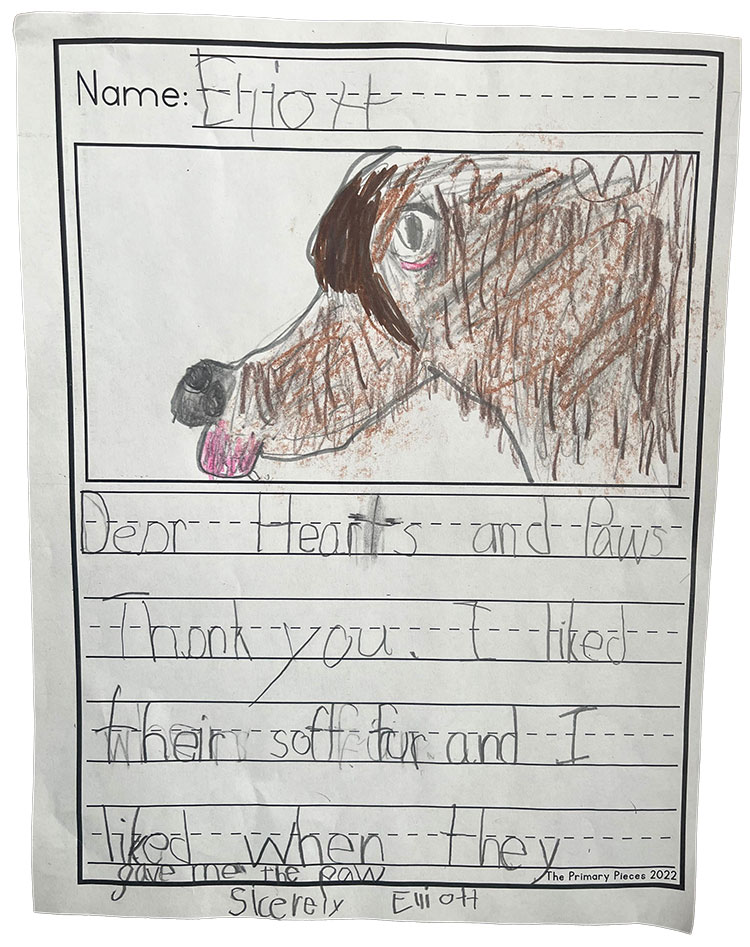 Name: Elliott
Dear Hearts and Paws
Thank you. I liked
their soft fur and I
liked when they
gave me the paw
The Primary Pieces 2022
Sicerely Elliott